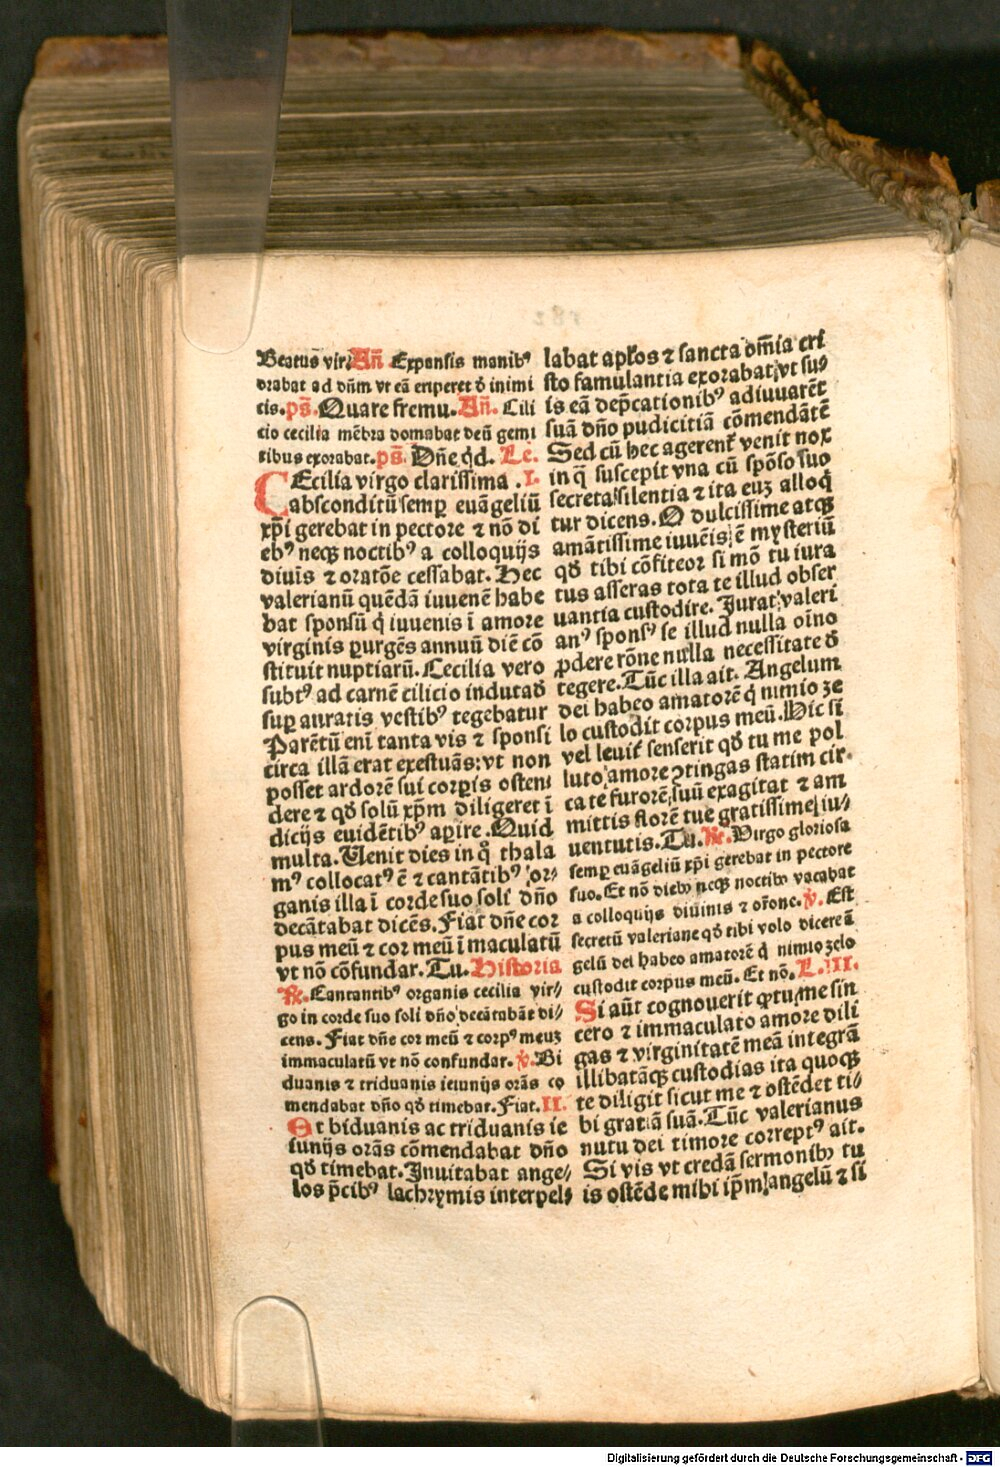 Beatus vir. Añ Expansis manibꝰ
orabat ad dñm vt eā eriperet ð inimi
cis. ps̄. Quare fremu. Añ. Cili
cio cecilia mēbra domabat deū gemi
tibus exorabat. ps̄. Dñe q̇d. Le.
CEcilia virgo clarissima .I.
absconditū semꝑ euāgeliū
xp̄i gerebat in pectore ⁊ nō di
ebꝰ necꝫ noctibꝰ a colloquijs
diuīs ⁊ oratōe cessabat. Hec
valerianū quēdā iuuenē habe
bat sponsū q̇ iuuenis ī amore
virginis ꝑurgēs annuū diē cō
stituit nuptiarū. Cecilia vero
subtꝰ ad carnē cilicio indutað
suꝑ auratis vestibꝰ tegebatur
Parētū enī tanta vis ⁊ sponsi
circa illā erat exestuās: vt non
posset ardorē sui corꝑis osten
dere ⁊ qð solū xp̄m diligeret ī
dicijs euidētibꝰ aꝑire. Quid
multa. Uenit dies in q̊ thala
mꝰ collocatꝰ ē ⁊ cantātibꝰ or⸗
ganis illa ī corde suo soli dño
decātabat dicēs. Fiat dñe cor
pus meū ⁊ cor meū īmaculatū
vt nō cōfundar. Tu. Historia
℟. Cantantibꝰ organis cecilia vir⸗
go in corde suo soli dño decātabāt di⸗
cens. Fiat dñe cor meū ⁊ corpꝰ meuꝫ
immaculatū vt nō confundar. ℣. Bi
duanis ⁊ triduanis ieiunijs orās co
mendabat dño qð timebat. Fiat. II.
Et biduanis ac triduanis ie
iunijs orās cōmendabat dño
qð timebat. Inuitabat ange⸗
los p̄cibꝰ lachrymis interpel⸗
labat apl̄os ⁊ sancta om̄ia cri
sto famulantia exorabat, vt su⸗
is eā dep̄cationibꝰ adiuuarēt
suā dño pudicitiā cōmendātē
Sed cū hec agerent̄ venit nox
in q̄ suscepit vna cū spōso suo
secreta silentia ⁊ ita euꝫ alloq̇
tur dicens. O dulcissime atqꝫ
amātissime iuuēis, ē mysteriū
qð tibi cōfiteor si mō tu iura
tus asseras tota te illud obser
uantia custodire. Jurat valeri
anꝰ sponsꝰ se illud nulla oīno
ꝓdere rōne nulla necessitate ð
tegere. Tūc illa ait. Angelum
dei habeo amatorē q̇ nimio ze
lo custodit corpus meū. Hic si
vel leuit̄ senserit qð tu me pol
luto amore ꝯtingas statim cir
ca te furorē suū exagitat ⁊ am
mittis florē tue gratissime iu⸗
uentutis. Tu. ℟. Virgo gloriosa
semꝑ euāgeliū xp̄i gerebat in pectore
suo. Et nō diebꝰ necꝫ noctibꝰ vacabat
a colloquijs diuinis ⁊ or̄one. ℣. Est
secretū valeriane qð tibi volo dicere ā
gelū dei habeo amatorē q̇ nimio zelo
custodit corpus meū. Et nō. L. III.
Si aūt cognouerit ꝙ tu me sin
cero ⁊ immaculato amore dili
gas ⁊ virginitatē meā integrā
illibatāqꝫ custodias ita quoqꝫ
te diligit sicut me ⁊ ostēdet ti⸗
bi gratiā suā. Tūc valerianus
nutu dei timore correptꝰ ait.
Si vis vt credā sermonibꝰ tu
is ostēde mibi ip̄m angelū ⁊ si
Digitalisierung gefördert durch die Deutsche Forschungsgemeinschaft - DFG